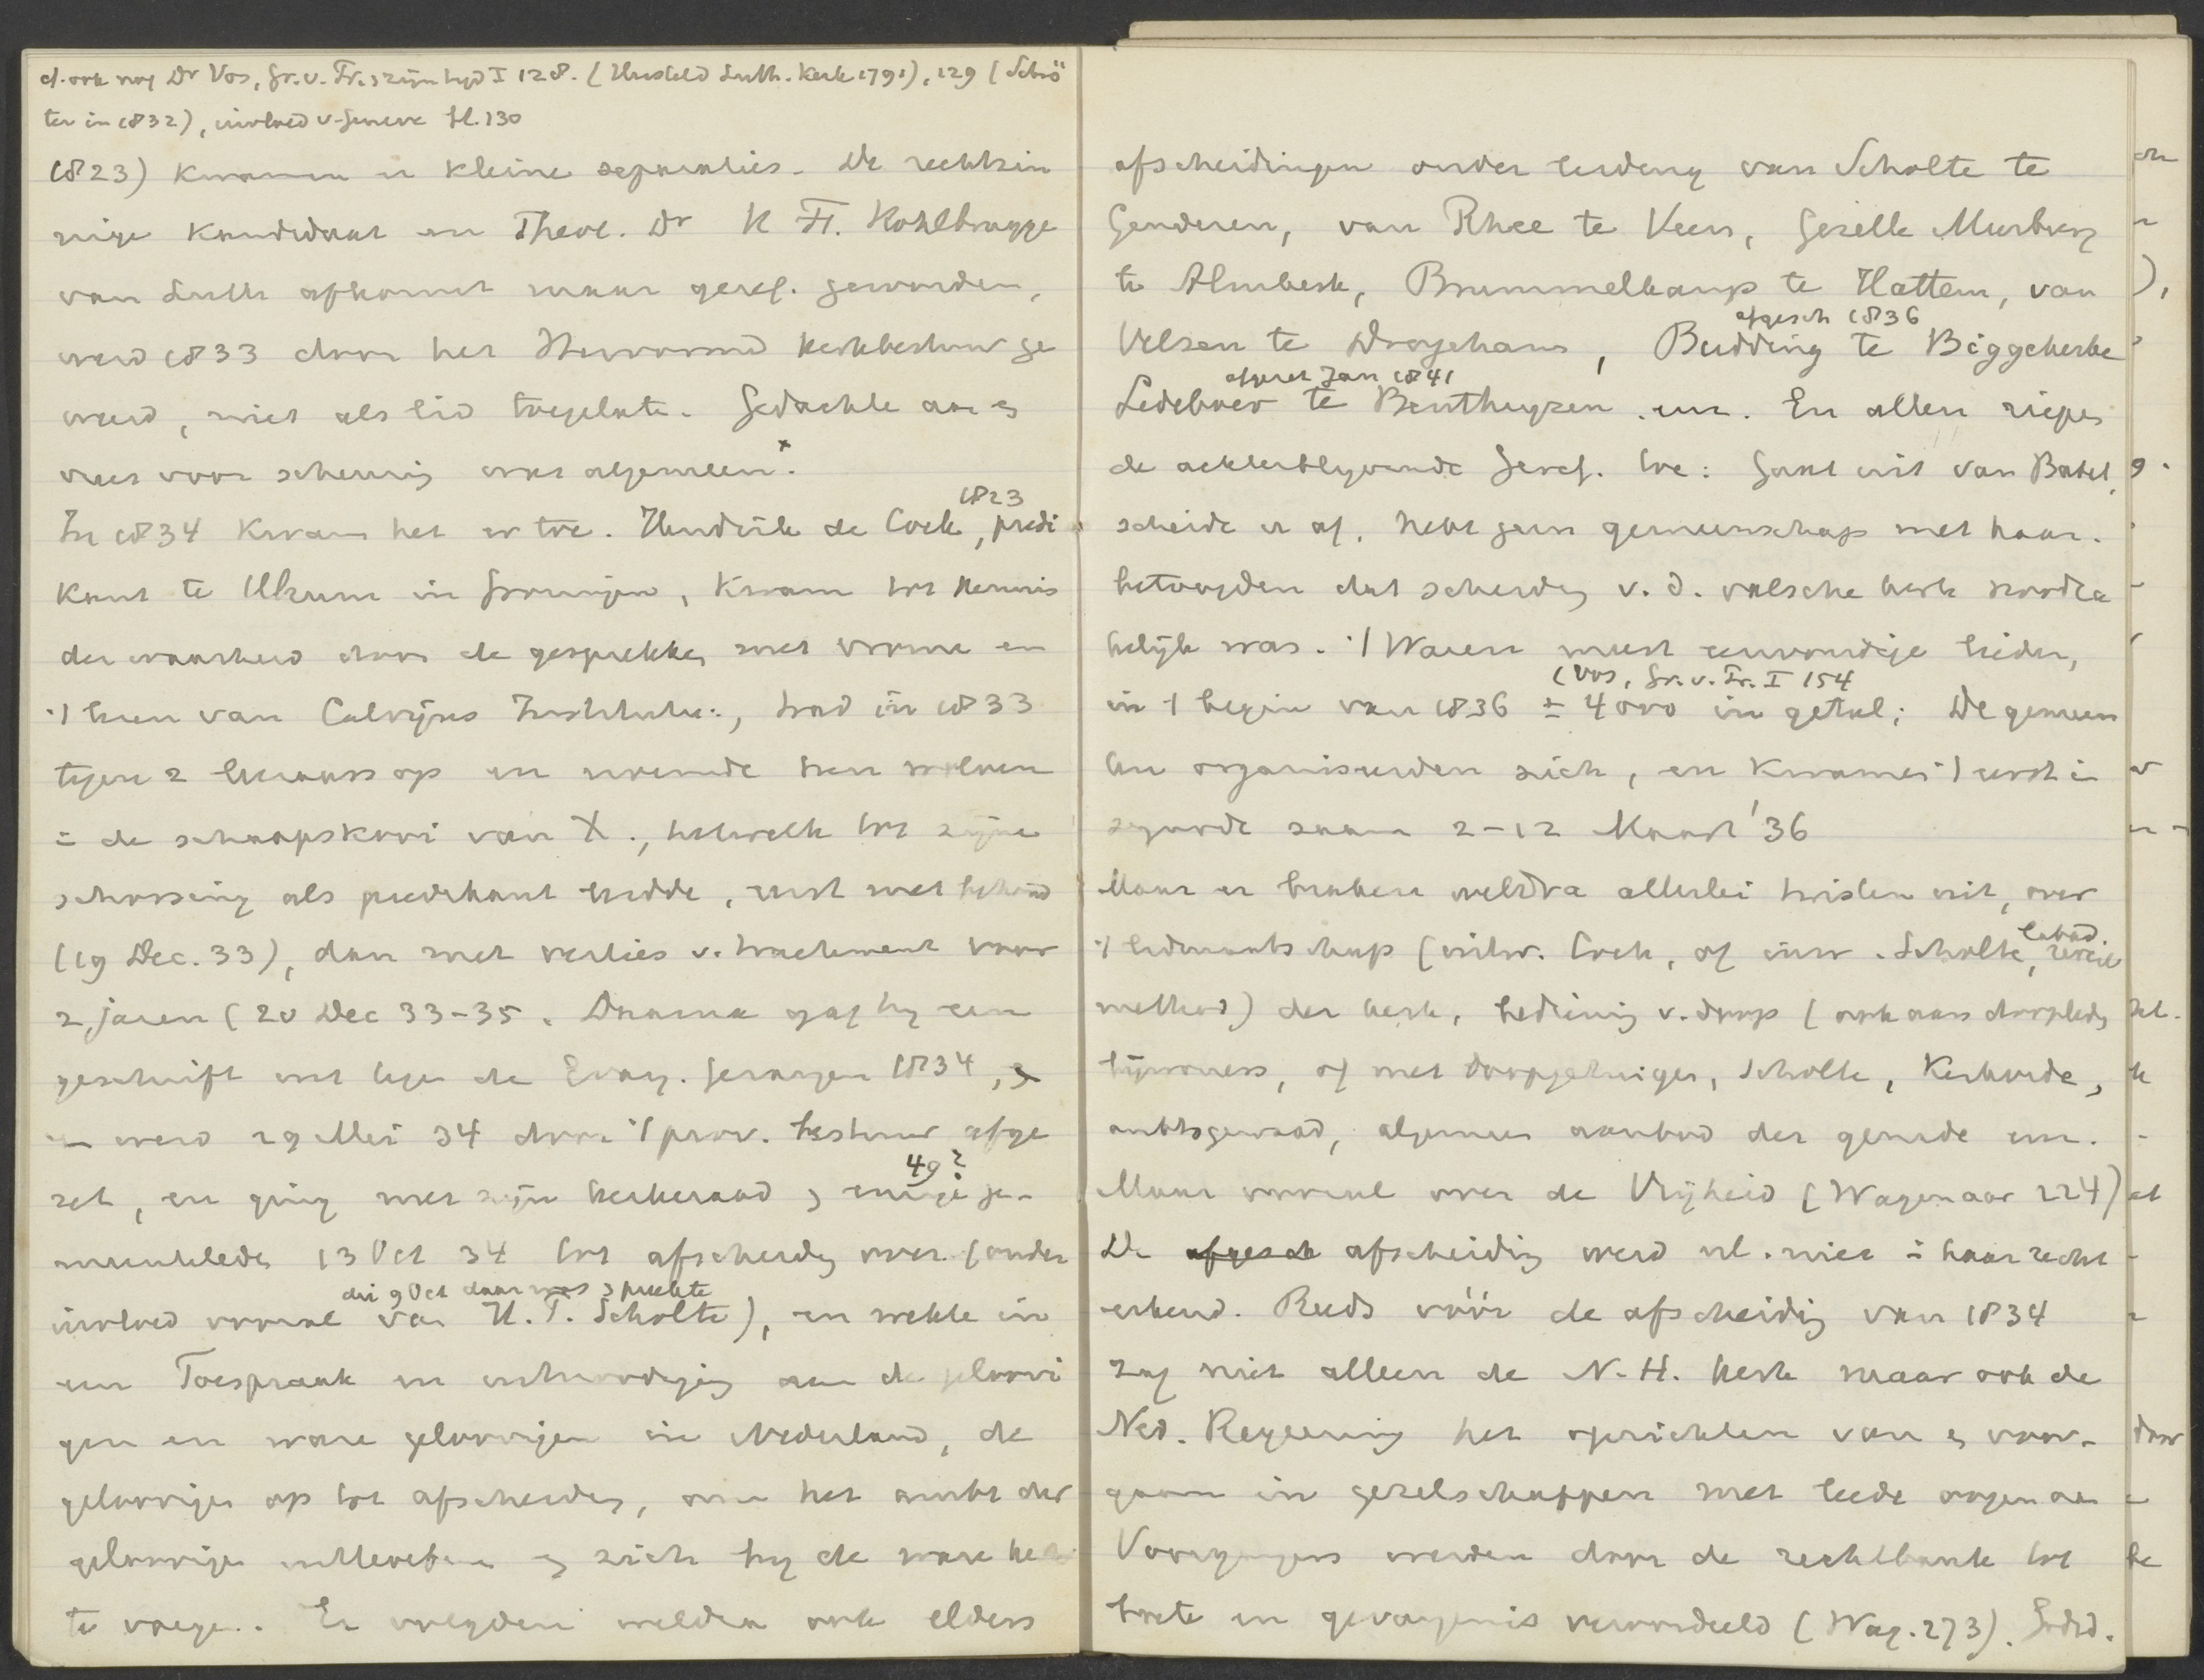 cf. ook nog Dr Vos, Gr. v. Pr. & zijn tijd I 128. (Hersteld Luth. Kerk 1791), 129 (Schrö
ter in 1832), invloed v. Geneve bl. 130
1823) kwamen er kleine separaties. De rechtzin
nige Kandidaat en Theol. Dr H. F. Kohlbrugge
van Luth afkomst maar geref. geworden,
werd 1833 door het Hervormd kerkbestuur ge
weerd, niet als lid toegelaten. Gedachte aan &
vrees voor scheuring was algemeen.x
In 1834 kwam het er toe. Hendrik de Cock, 1823 predi
kant te Ulrum in Groningen, kwam tot kennis
der waarheid door de gesprekken met vrome en
't lezen van Calvijns Institutie, trad in 1833
tegen 2 leeraars op en noemde hen wolven
in de schaapskooi van X., hetwelk tot zijne
schorsing als predikant leidde, eerst met behoud
(19 Dec. 33), dan met verlies v. tractement voor
2 jaren (20 Dec 33-35. Daarna gaf hij een
geschrift uit tegen de Evang. Gezangen 1834, &
en werd 29 Mei 34 door 't prov. bestuur afge
zet, en ging met zijn kerkeraad & eenige 49? ge-
meenteleden 13 Oct 34 tot afscheiding over. (onder
die 9 Oct daar was & preekte
invloed vooral van H. P. Scholte), en wekte in
een Toespraak en uitnoodiging aan de geloovi
gen en ware geloovigen in Nederland, de
geloovigen op tot afscheiding, om het ambt der
geloovigen uitteoefenen & zich bij de ware kerk
te voegen. Er volgden weldra ook elders
afscheidingen onder leiding van Scholte te
Genderen, van Rhee te Veen, Gezelle Meerburg
te Almkerk, Brummelkamp te Hattem, van
afgesch 1836
Velzen te Drogeham, Budding te Biggekerke
afgezet Jan 1841
Ledeboer te Benthuyzen enz. En allen riepen
de achterblyvende Geref. toe: Gaat uit van Babel,
scheidt er af, hebt geen gemeenschap met haar.
betoogden dat scheiding v. d. valsche kerk noodza
kelijk was. 't Waren meest eenvoudige lieden,
(Vos, Gr. v. Pr. I 154
in 't begin van 1836 ± 4000 in getal; De gemeen
ten organiseerden zich, en kwamen 't eerst in
synode saam 2-12 Maart '36
Maar er braken weldra allerlei twisten uit, over
labad.
't lidmaatschap (uitw. Cock, of inw. Scholte,
method) der kerk, bediening v. doop (ook aan doopleden
, of met doopgetuigen, Scholte, Kerkorde,
ambtsgewaad, algemeen aanbod der genade enz.
Maar vooral over de Vrijheid (Wagenaar 224)
De afgesch afscheiding werd nl. niet in haar recht
erkend. Reeds vóór de afscheiding van 1834
zag niet alleen de N. H. kerk maar ook de
Ned. Regeering het oprichten van & voor-
gaan in gezelschappen met leede oogen aan
Voorgangers werden door de rechtbank tot
boete en gevangenis veroordeeld (Wag. 273). Godsd.